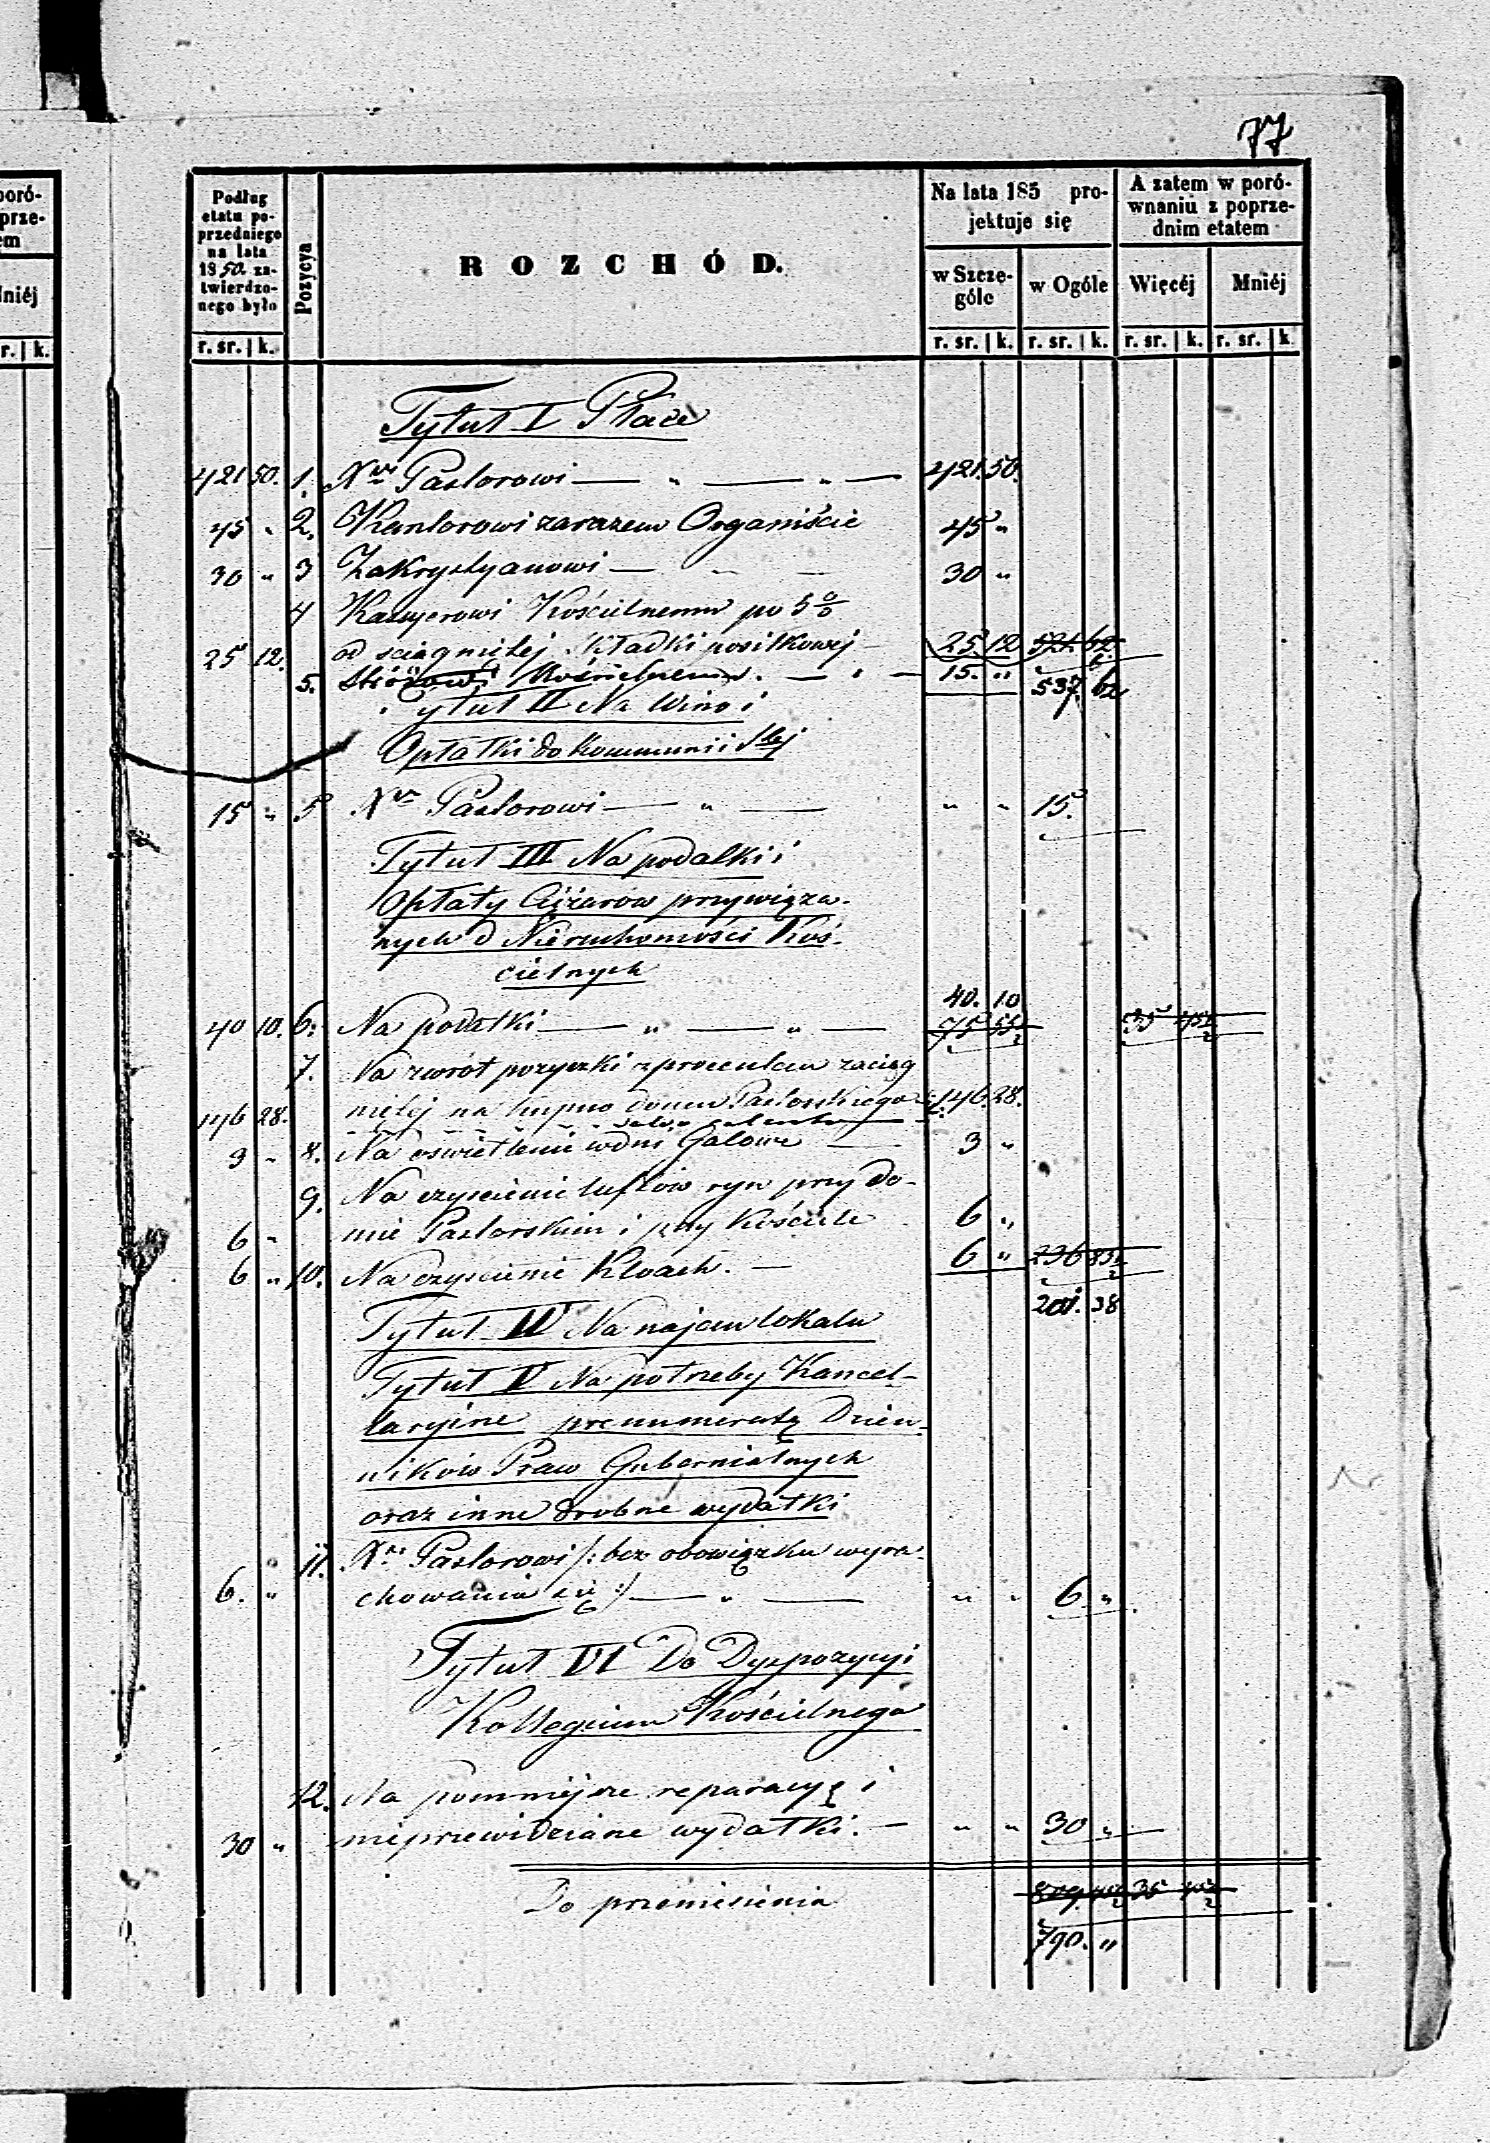 77
poró-
prze-
em
Mniéj
r. | k.
Podług
etatu po-
przedniego
na lata
1850 za-
twierdzo-
nego było
Pozycya
ROZCHÓD.
Na lata 185 pro-
jektuje się
A zatem w poró-
wnaniu z poprze-
dnim etatem
w Szczę-
góle
w Ogóle
Więcéj
Mniéj
r. sr. | k.
r. sr. | k. r. sr. | k. r. sr. | k. r. sr. | k.
Tytuł I Płace
421 50. 1. Xdzu Pastorowi — „ — „ — 421. 50.
45 „ 2. Kantorowi zarazem Organiście 45 „
30 „ 3 Zakrystyanowi — „ — 30 „
4 Kassyerowi Kościelnemu po 5 %
25 12. od sciągniętej składki posiłkowej 25. 12 521. 62.
5. Stróżowi Kościelnemu. — „ — 15. „ 537. 62
Tytuł II Na Wino i
Opłatki do Kommunii Stej
15 „ 5 Xdzu Pastorowi — „ — „ „ 15.
Tytuł III Na podatki i
Opłaty Ciężarów przywiąza-
nych d Nieruchomości Koś-
cielnych
40. 10
40 10. 6. Na podatki — „ — „ — 75 55½ 35 45½
7. Na zwrot pożyczki z procentem zaciąg
146 28. niętej na kupno domu Pastorskiego 146. 28.
3 „ 8. Na oświetlenie w dni Galowe — 3 „
9. Na czyscienie lustrów ryn przy do-
6 „ mie Pastorskim i przy Kościele 6 „
6 „ 10. Na czyscienie Kloach. — 6 „ 236 83½
201. 38
Tytuł IV Na najem lokalu
Tytuł V Na potrzeby Kancel-
laryine prenumeratę Dzien-
ników Praw Gubernialnych
oraz inne drobne wydatki
11. Xdzu Pastorowi /: bez obowiązku wyra-
6. „ chowania się :/ — „ — „ „ 6 „
Tytuł VI Do Dyspozycyi
Kollegium Kościelnego
12. Na pomniejsze reparacyę i
30 „ nieprzewidziane wydatki. — „ „ 30 „
Do przeniesienia 809. 45½ 35 45½
790. „